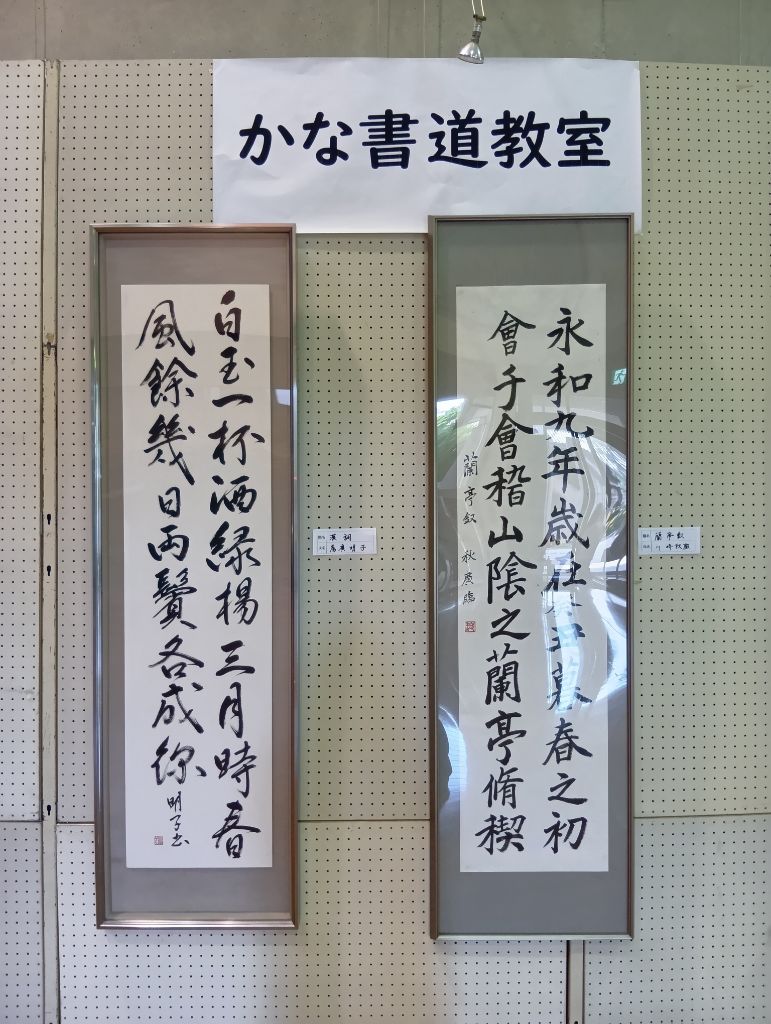 かな書道教室
永和九年歳在癸丑暮春之初
會于會稽山陰之蘭亭脩稧
蘭亭叙 秋 臨
蘭亭叙
白玉一杯酒緑楊三月時春
風餘幾日両鬢各成絲
明子書
明子